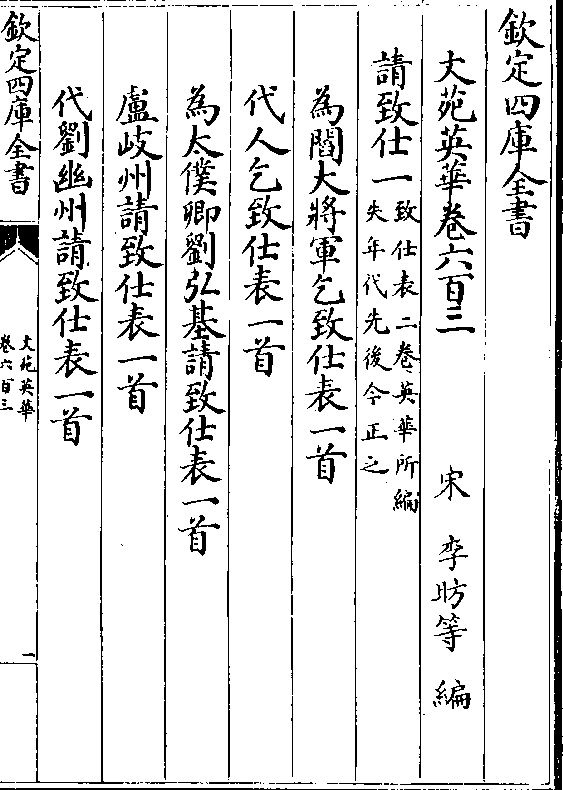 欽定四庫全書
文苑英華卷六百三
宋 李昉等 編
請致仕一
致仕表二卷英華所編
失年代先後今正之
為閻大將軍乞致仕表一首
代人乞致仕表一首
為太僕卿劉弘基請致仕表一首
盧岐州請致仕表一首
代劉幽州請致仕表一首
欽定四庫全書
文苑英華
卷六百三
一